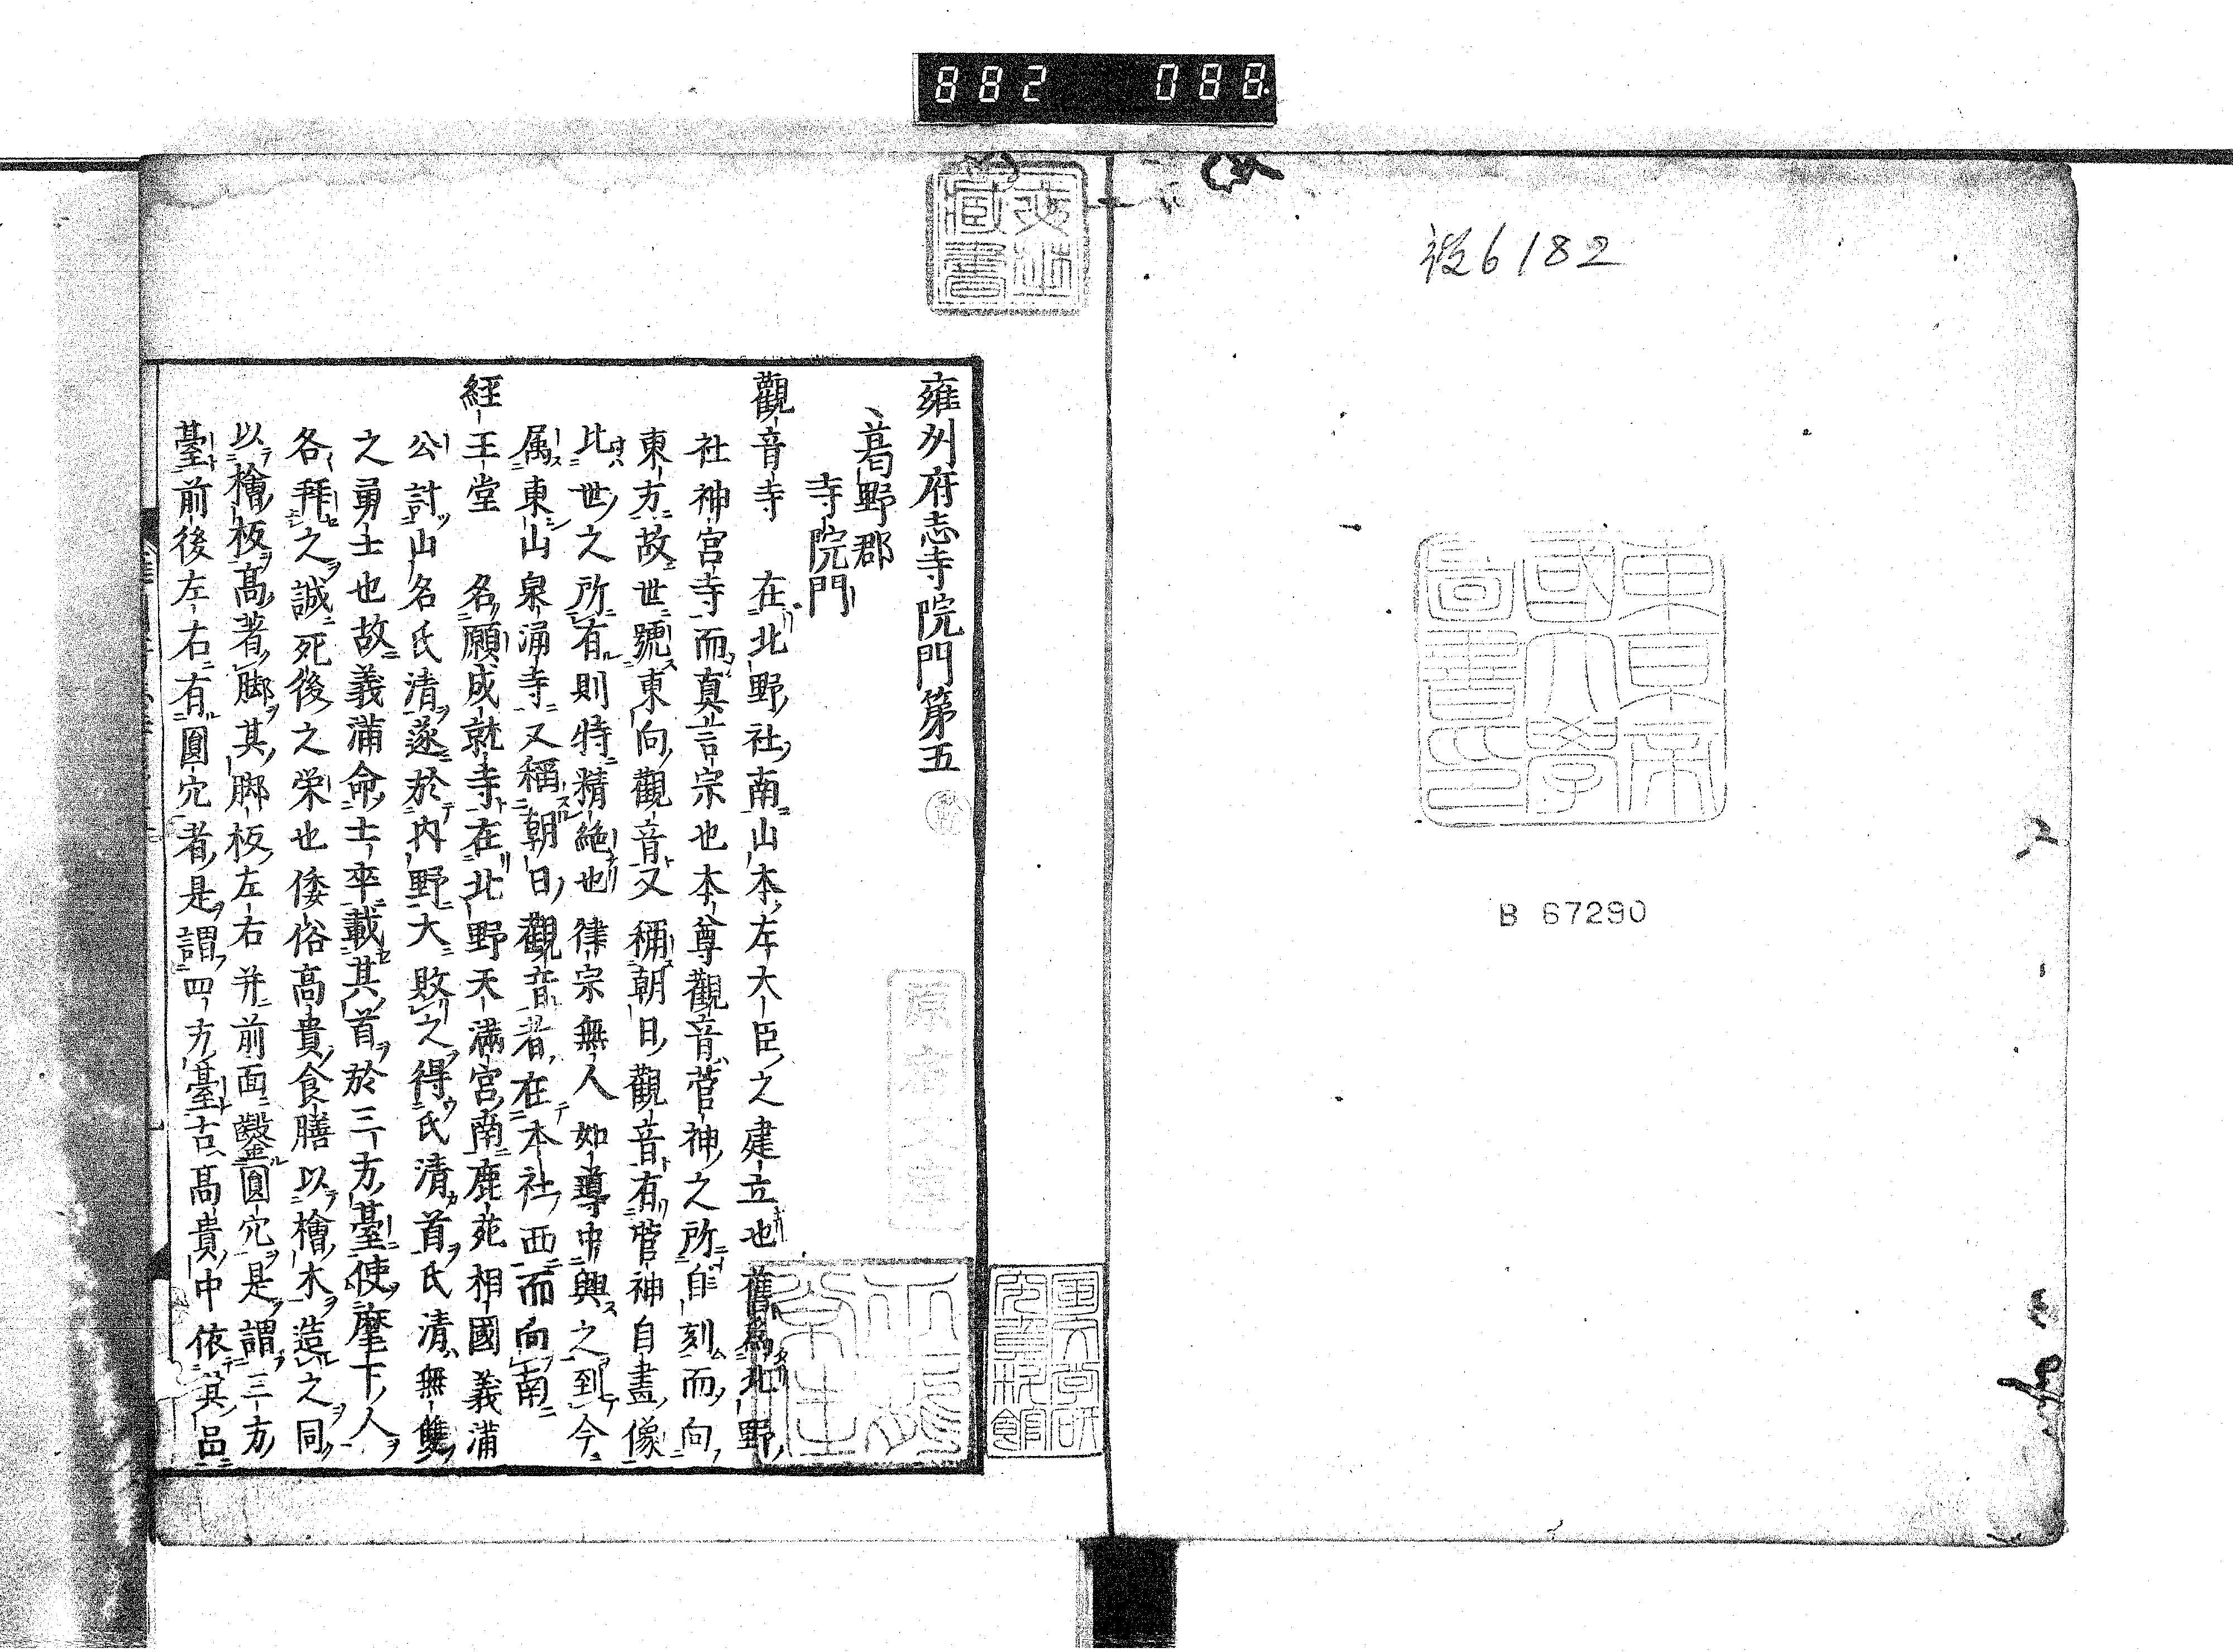 882 088
6182
東京帝
國大學
圖書印
B 67290
藏書
雍州府志寺院門第五
葛野郡
寺院門
觀音寺 在北野社南山本左大臣之建立也舊爲北野
社神宮寺而真言宗也本尊觀音菅神之所自刻而向
東方故世號東向觀音又稱朝日觀音有菅神自畫像
比世之所有則特精絶也律宗無人如導中興之到今
属東山泉涌寺又稱朝日觀音者在本社西而向南
經王堂 名願成就寺在北野天滿宮南鹿苑相國義滿
公討山名氏清遂於内野大敗之得氏清首氏清無雙
之勇士也故義滿命士卒載其首於三方臺使麾下人
各拜之誠死後之栄也倭俗高貴食膳以檜木造之同
以檜板高著脚其脚板左右并前面鑿圓穴是謂三方
臺前後左右有圓穴者是謂四方臺古高貴中依其品